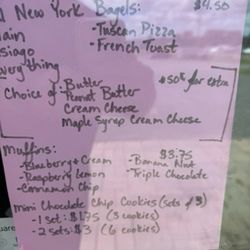 New York Bagels: $4.50
- Tuscan Pizza
- French Toast
Choice of: - Butter
- Peanut Butter
Cream Cheese
Maple Syrup Cream Cheese
50¢ for extra
Muffins: $3.75
- Blueberry + Cream - Banana Nut
- Raspberry Lemon - Triple Chocolate
- Cinnamon Chip
Mini Chocolate Chip Cookies (sets of 3)
- 1 set: $1.75 (3 cookies)
- 2 sets: $3 (6 cookies)